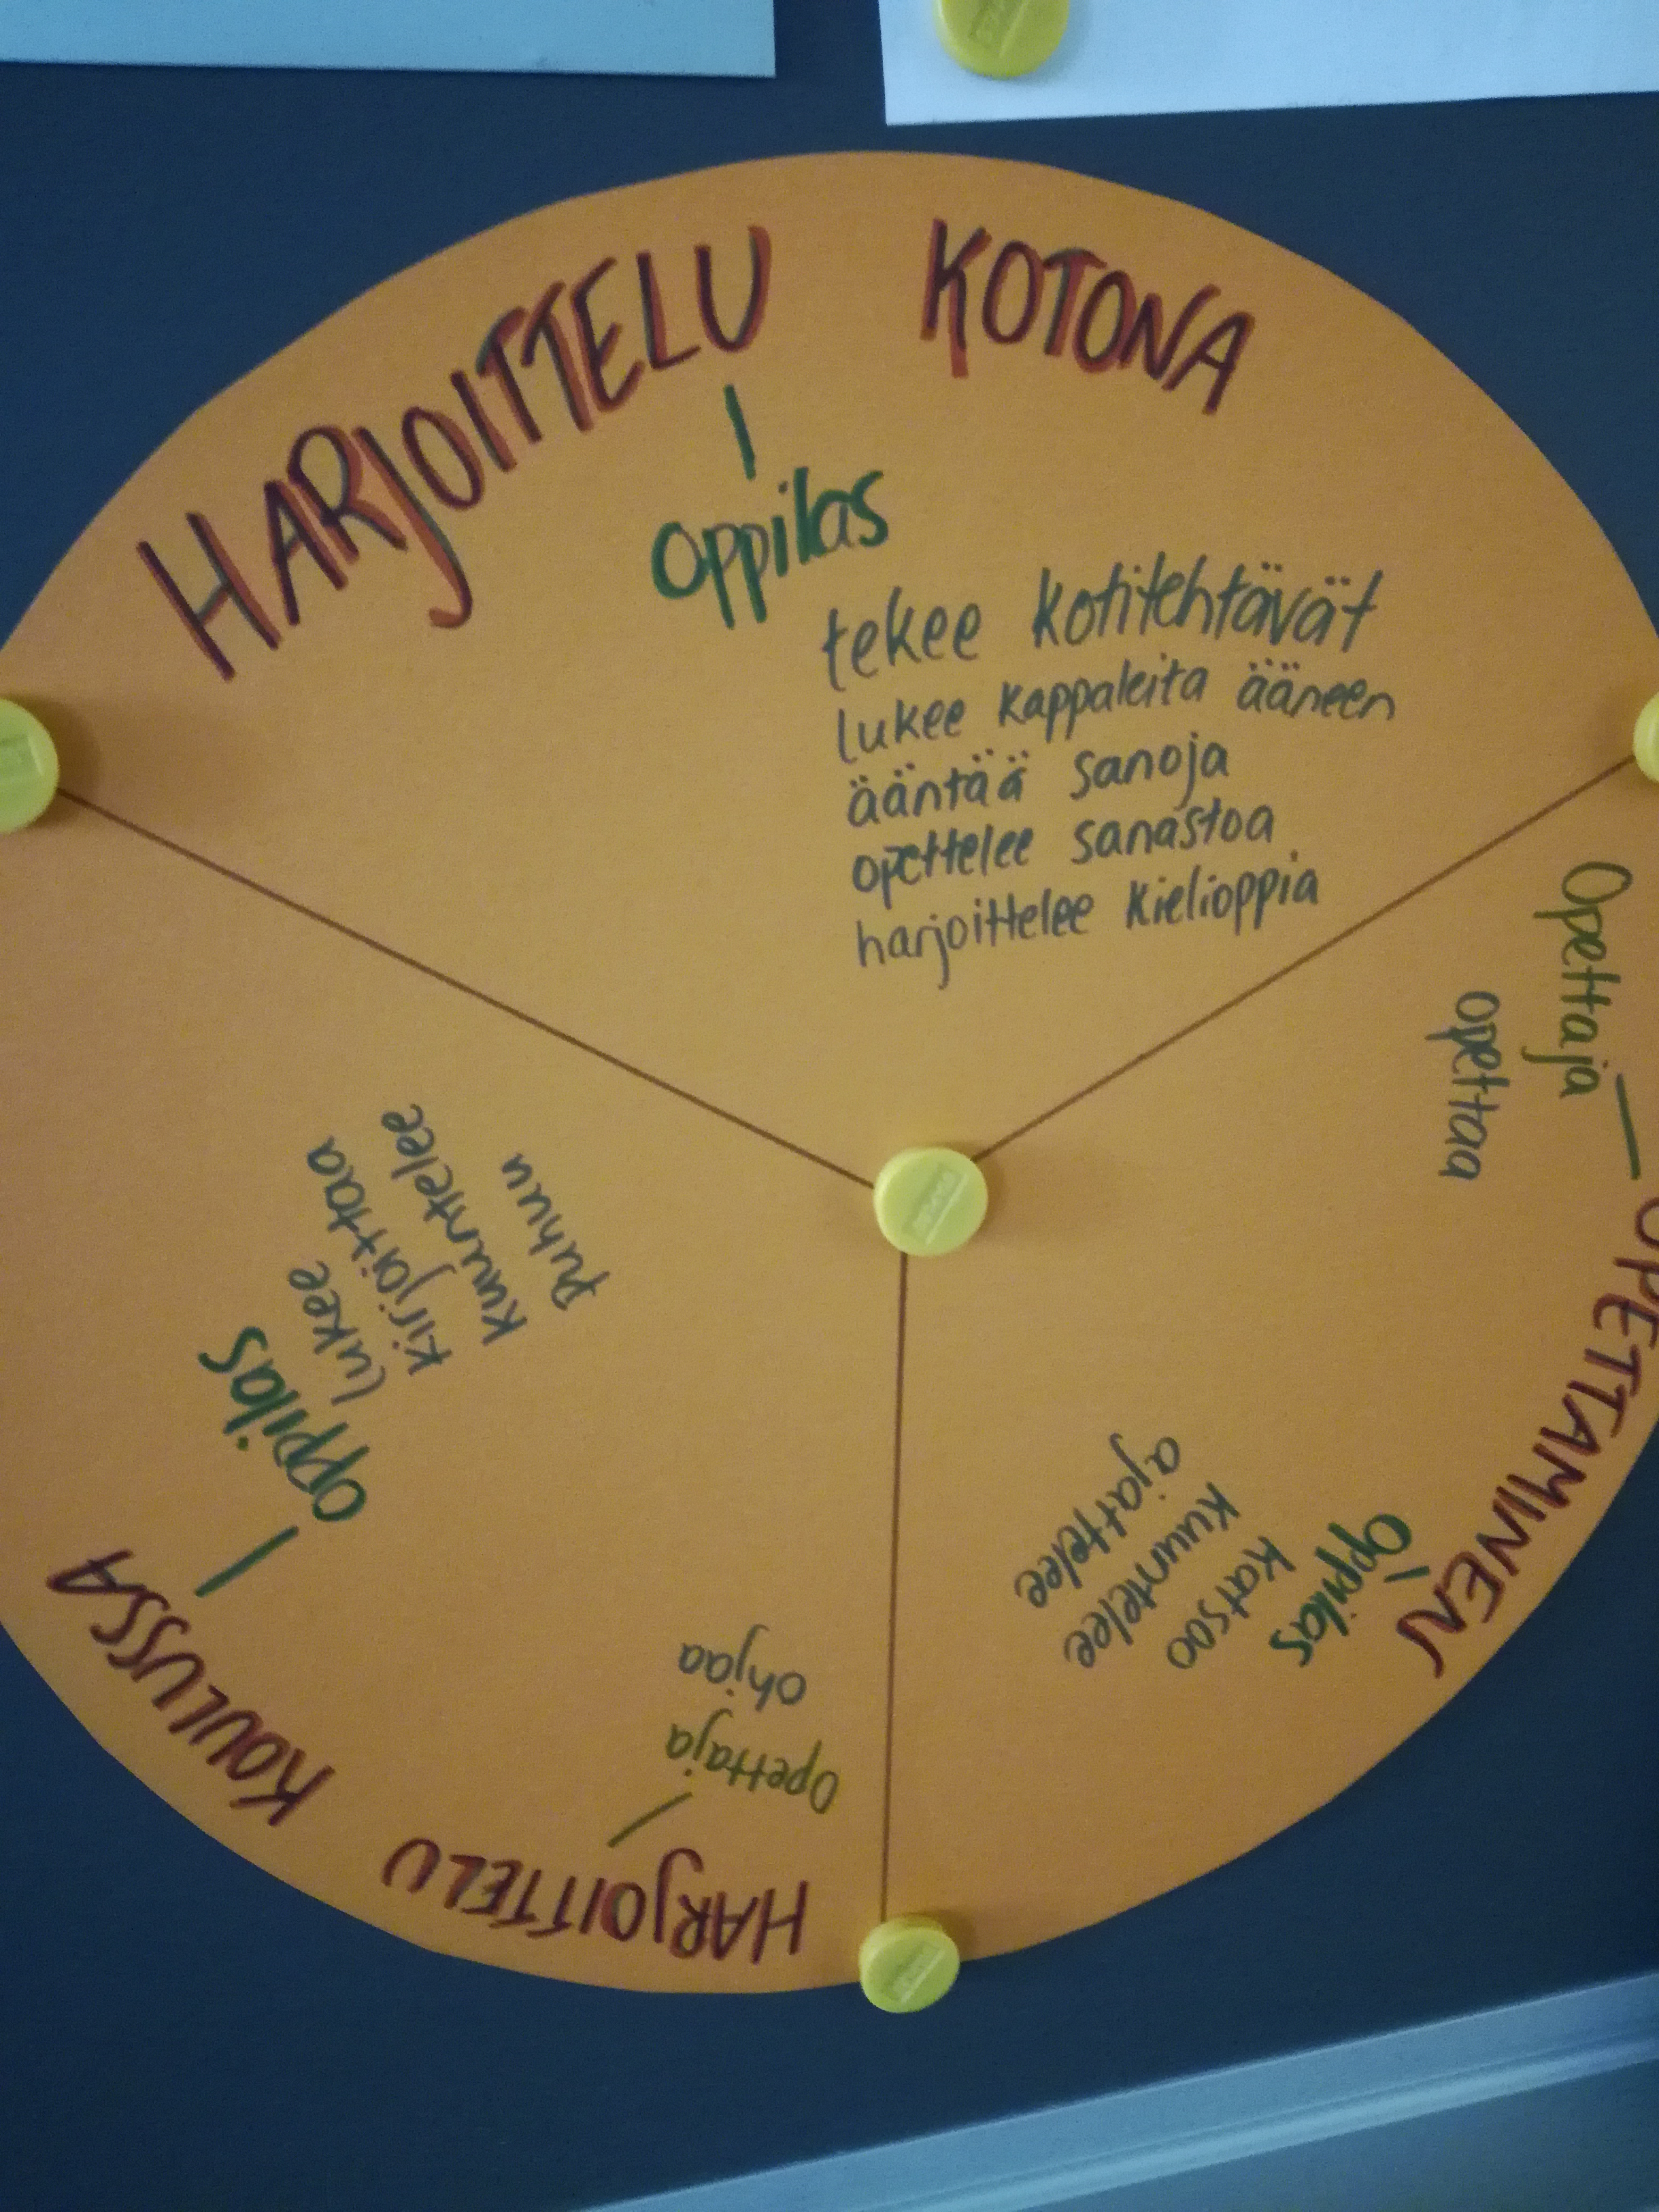 HARJOITTELU KOTONA
oppilas
tekee kotitehtävät
lukee kappaleita ääneen
ääntää sanoja
opettelee sanastoa
harjoittelee kielioppia
OPETTAMINEN
Opettaja
opettaa
Oppilas
katsoo
kuuntelee
ajattelee
HARJOITTELU KOULUSSA
Opettaja
ohjaa
oppilas
lukee
kirjoittaa
kuuntelee
puhuu